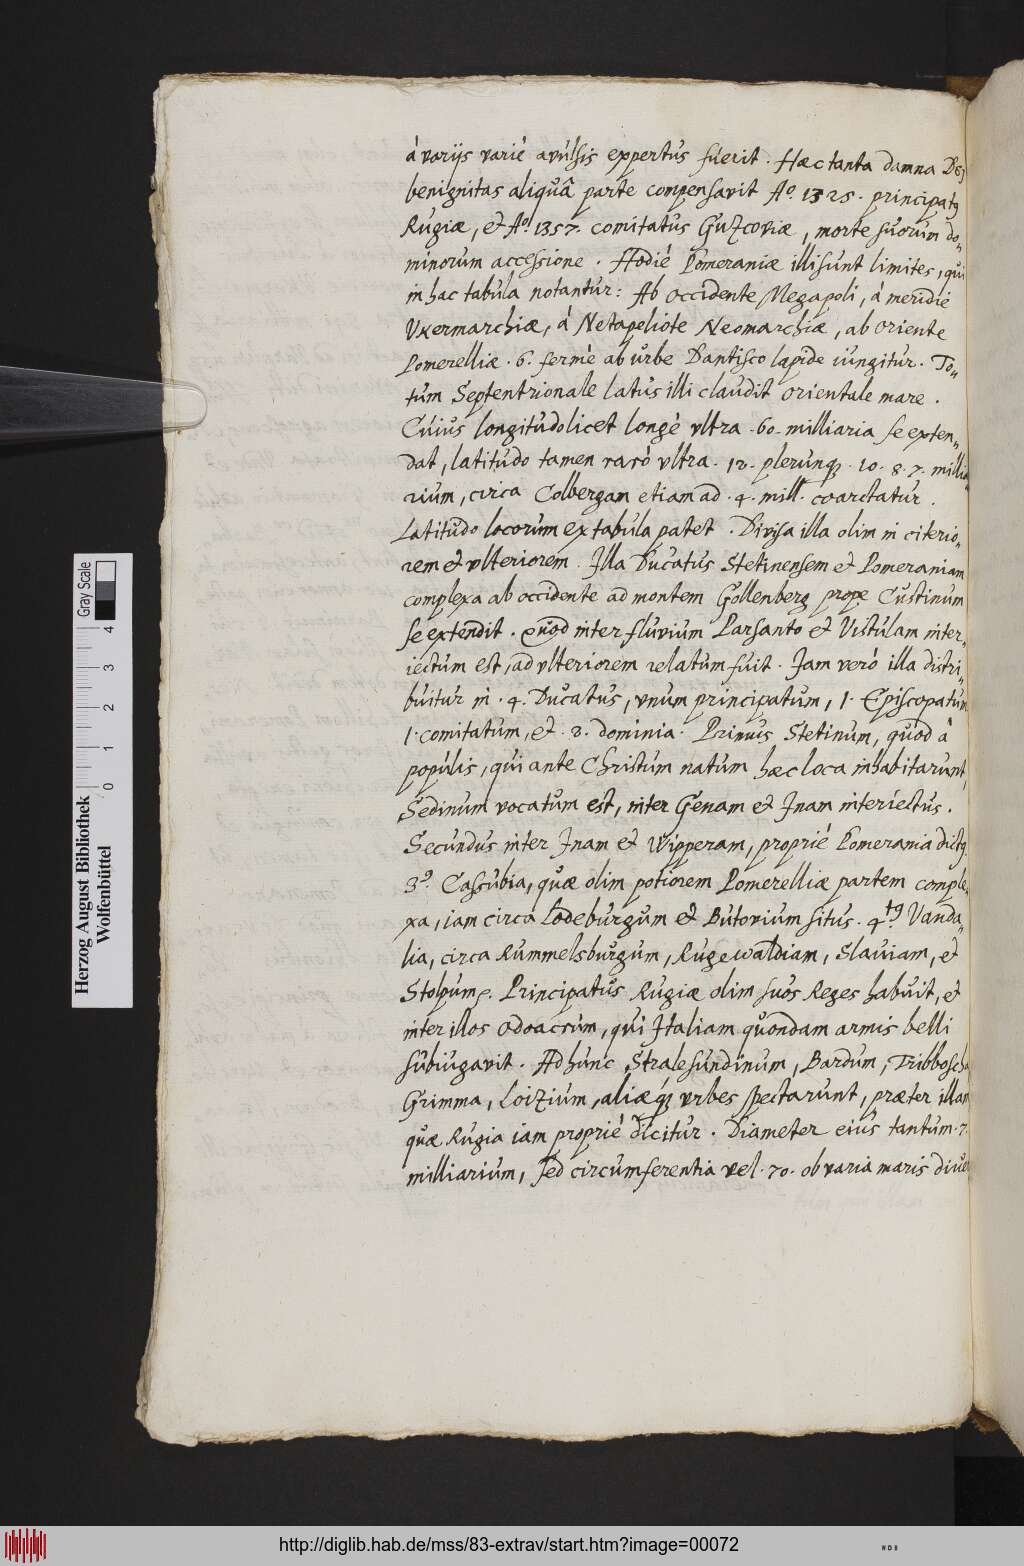 á varijs varié avúlsis expertús fúerit. Hæc tanta damna Dei
benignitas aliquâ parte compensavit Aº. 1325. principatꝰ
Rúgiæ, et Aº. 1357. comitatús Gutzcoviæ, morte súorúm do„
minorum accessione. Hodié Pomeraniæ illi súnt limites, qui
in hac tabúla notantúr: Ab occidente Megapoli, á meridie
Uxermarchiæ, á Netapeliote Neomarchiæ, ab oriente
Pomerelliæ. 6. fermè ab úrbe Dantisco lapide iúngitúr. To„
túm Septentrionale latús illi claúdit orientale mare.
Cúiús longitúdo licet longè vltra .60. milliaria se exten„
dat, latitúdo tamen raró vltra. 12. plerunq; .10. 8. 7. millia„
rium, circa Colbergam etiam ad .4. mill. coarctatúr.
Latitúdo locorúm ex tabúla patet. Divisa illa olim in citerio„
rem et vlteriorem. Illa Dúcatús Stetinensem et Pomeraniam
complexa ab occidente ad montem Gollenberg prope Custinum
se extendit. Quod inter flúvium Parsanto et Vistúlam inter„
iectúm est, ad vlteriorem relatúm fúit. Jam veró illa distri„
búitúr in .4. Dúcatús, vnum principatúm, 1. Episcopatúm
1. comitatúm, et .2. dominia. Primús Stetinum, qúod â
popúlis, qúi ante Christúm natúm hæc loca inhabitarúnt,
Sedinúm vocatúm est, inter Genam et Jnam interiectús.
Secúndús inter Jnam et Wipperam, proprié Pomerania dictꝰ
3º. Cassúbia, qúæ olim potiorem Pomerelliæ partem comple„
xa, iam circa Lodebúrgúm et Bútoviúm sitús. 4tꝰ. Vanda„
lia, circa Rúmmelsbúrgúm, Rúgewaldiam, Slaúiam, et
Stolpúm. Principatús Rúgiæ olim súos Reges habúit, et
inter illos Odoacrúm, qúi Italiam qúondam armis belli
súbiúgavit. Ad húnc Stralesúndinúm, Bardúm, Tribbosch
Grimma, Loizium, aliæq; vrbes spectarúnt, præter illam
qúæ Rúgia iam proprié dicitúr. Diameter eiús tantúm .7.
milliariúm, sed circúmferentia vel .70. ob varia maris diúe
Herzog August Bibliothek
Wolfenbüttel
0 1 2 3 4
Gray Scale
http://diglib.hab.de/mss/83-extrav/start.htm?image=00072
WDB